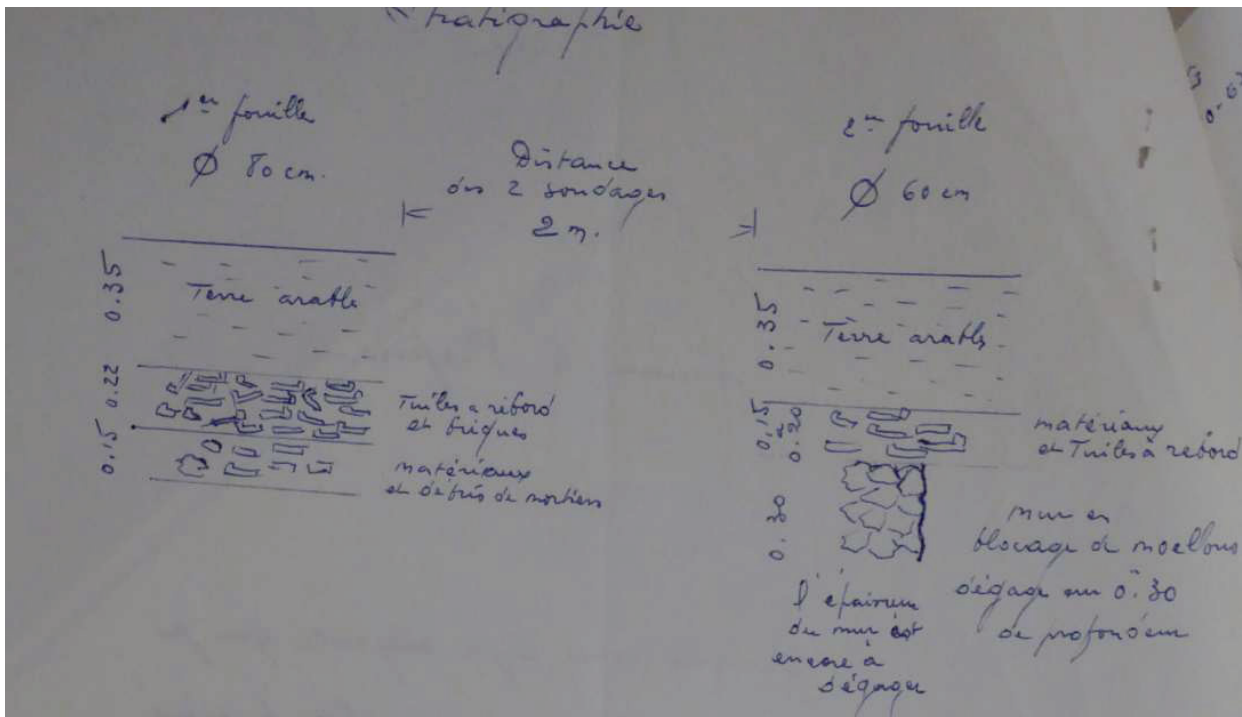 Stratigraphie
1ere fouille
Ø 80 cm.
Distance
des 2 sondages
2 m.
2em fouille
Ø 60 cm
0.35
Terre arable
0.22
Tuiles a rebord
et briques
0.15
matériaux
et débris de mortiers
0.35
Terre arable
0.15
à
0.20
matériaux
et Tuiles à rebord
0.30
mur en
blocage de moellons
dégagé sur 0.m30
de profondeur
l'épaisseur
du mur est
encore à
dégager